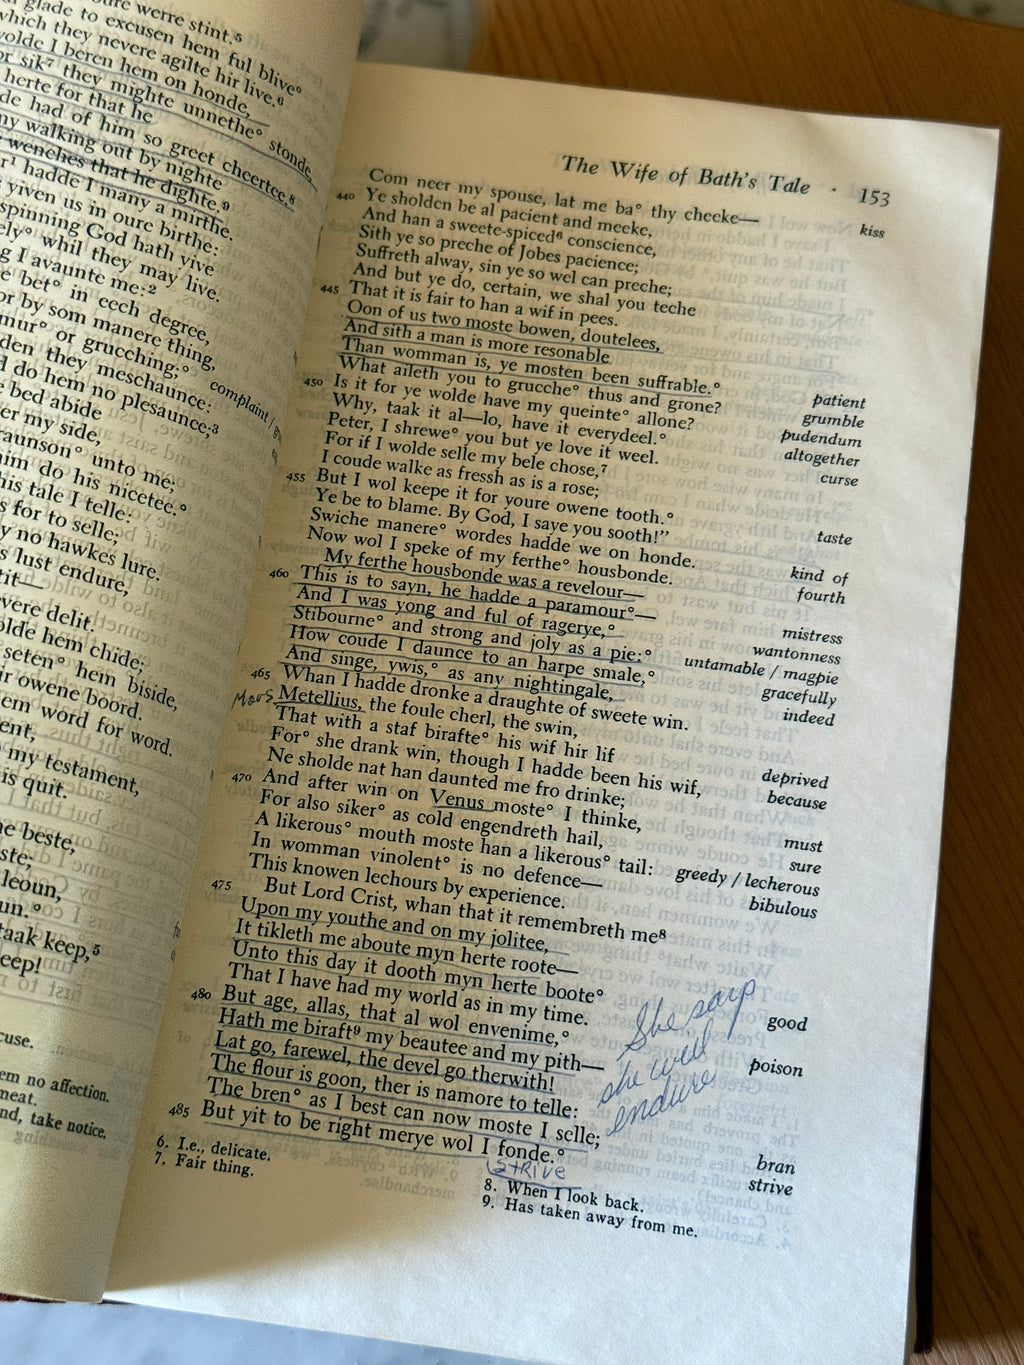 werre stint.⁵
glade to excusen hem ful blive°
which they nevere agilte hir live.⁶
wolde I beren hem on honde,
sik⁷ they mighte unnethe° stonde,
herte for that he
had of him so greet cheertee,⁸
my walking out by nighte
wenches that he dighte.⁹
hadde I many a mirthe.
yiven us in oure birthe:
spinning God hath yive
whil they may live.
I avaunte me:²
bet° in eech degree,
or by som manere thing,
or grucching;° complaint /
they meschaunce:
do hem no plesaunce;³
bed abide
my side,
raunson° unto me;
him do his nicetee.°
his tale I telle:
for to selle;
no hawkes lure.
lust endure,
delit.
hem chide;
seten° hem biside,
owene boord.
hem word for word.
my testament,
is quit.
beste,
leoun,
taak keep,⁵
no affection.
meat.
take notice.
The Wife of Bath's Tale · 153
Com neer my spouse, lat me ba° thy cheeke— kiss
440 Ye sholden be al pacient and meeke,
And han a sweete-spiced⁶ conscience,
Sith ye so preche of Jobes pacience;
Suffreth alway, sin ye so wel can preche;
And but ye do, certain, we shal you teche
445 That it is fair to han a wif in pees.
Oon of us two moste bowen, doutelees,
And sith a man is more resonable
Than womman is, ye mosten been suffrable.° patient
What aileth you to grucche° thus and grone? grumble
450 Is it for ye wolde have my queinte° allone? pudendum
Why, taak it al—lo, have it everydeel.° altogether
Peter, I shrewe° you but ye love it weel. curse
For if I wolde selle my bele chose,⁷
I coude walke as fressh as is a rose;
455 But I wol keepe it for youre owene tooth.° taste
Ye be to blame. By God, I saye you sooth!”
Swiche manere° wordes hadde we on honde. kind of
Now wol I speke of my ferthe° housbonde. fourth
My ferthe housbonde was a revelour—
460 This is to sayn, he hadde a paramour°— mistress
And I was yong and ful of ragerye,° wantonness
Stibourne° and strong and joly as a pie:° untamable / magpie
How coude I daunce to an harpe smale,° gracefully
And singe, ywis,° as any nightingale, indeed
465 Whan I hadde dronke a draughte of sweete win.
Mars Metellius, the foule cherl, the swin,
That with a staf birafte° his wif hir lif deprived
For° she drank win, though I hadde been his wif, because
Ne sholde nat han daunted me fro drinke;
470 And after win on Venus moste° I thinke, must
For also siker° as cold engendreth hail, sure
A likerous° mouth moste han a likerous° tail: greedy / lecherous
In womman vinolent° is no defence— bibulous
This knowen lechours by experience.
475 But Lord Crist, whan that it remembreth me⁸
Upon my youthe and on my jolitee,
It tikleth me aboute myn herte roote—
Unto this day it dooth myn herte boote° good
That I have had my world as in my time.
480 But age, allas, that al wol envenime,° poison
Hath me biraft⁹ my beautee and my pith—
Lat go, farewel, the devel go therwith!
The flour is goon, ther is namore to telle:
The bren° as I best can now moste I selle; bran
485 But yit to be right merye wol I fonde.° strive
She says
she will
endure
STRIVE
6. I.e., delicate.
7. Fair thing.
8. When I look back.
9. Has taken away from me.